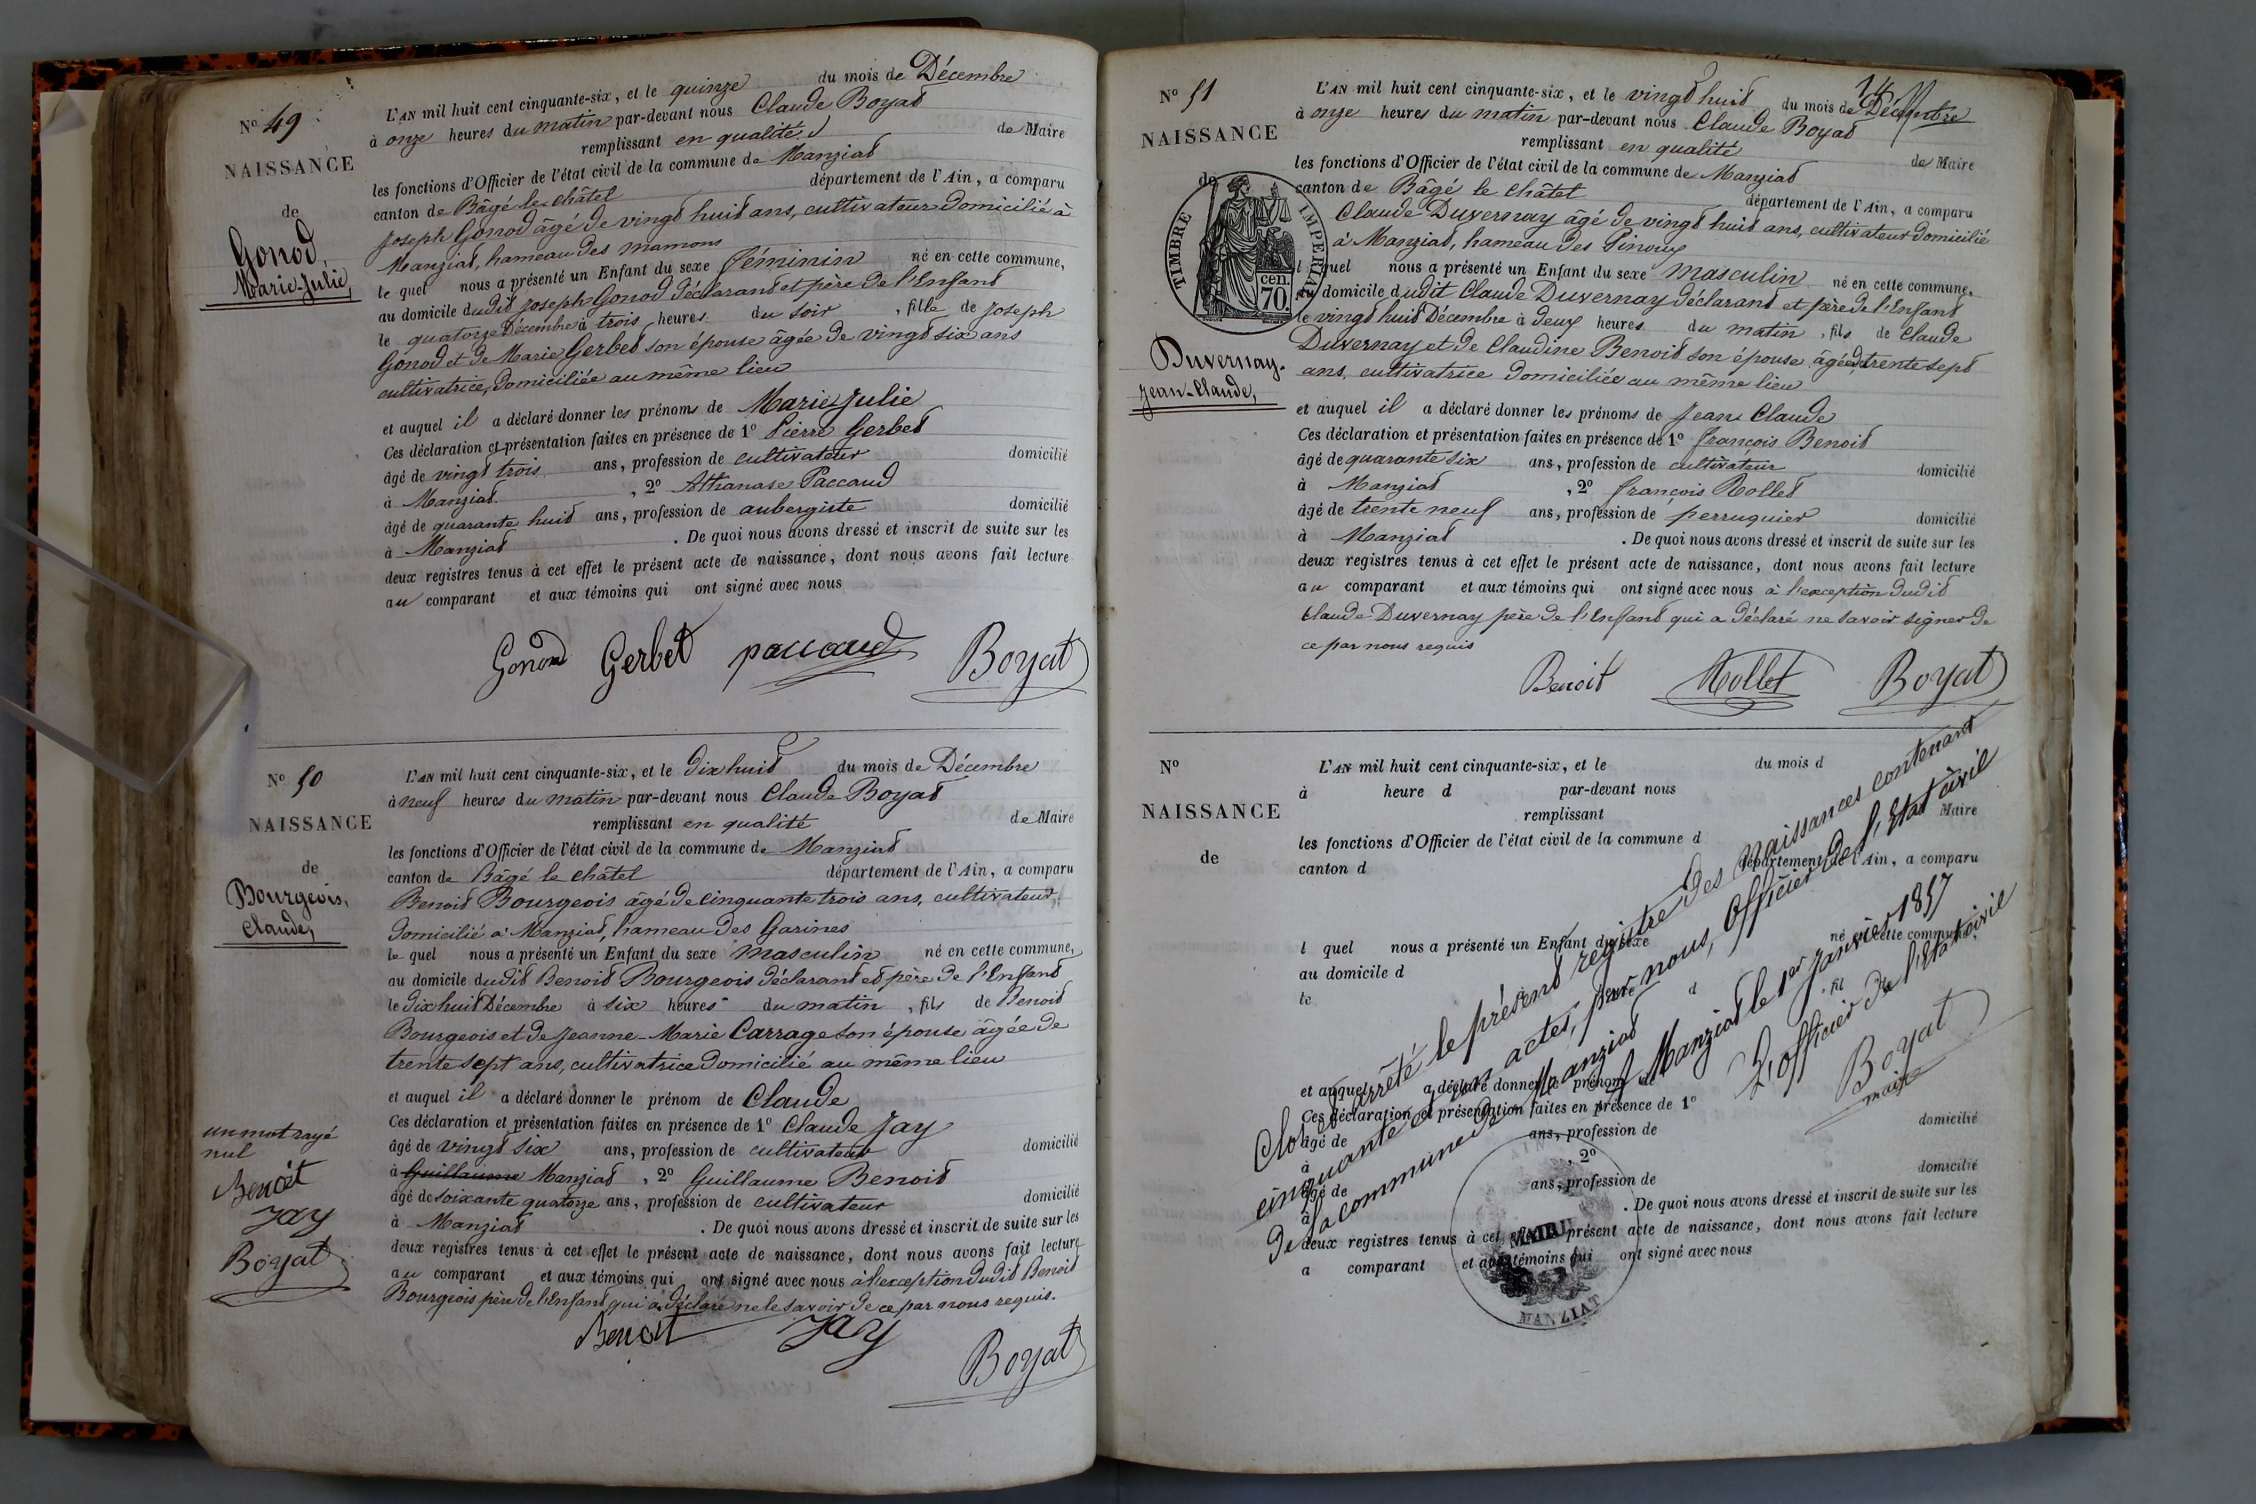 N° 49
NAISSANCE
de
Gonod,
Marie-Julie,
L'AN mil huit cent cinquante-six, et le quinze du mois de Décembre
à onze heures du matin par-devant nous Claude Boyat
remplissant en qualité de Maire
les fonctions d'Officier de l'état civil de la commune de Manziat
canton de Bâgé le châtel département de l'Ain, a comparu
Joseph Gonod âgé de vingt huit ans, cultivateur domicilié à
Manziat, hameau des mamons
le quel nous a présenté un Enfant du sexe féminin né en cette commune,
au domicile dudit Joseph Gonod déclarant et père de l'Enfant
le quatorze Décembre à trois heures du soir, fille de Joseph
Gonod et de Marie Gerbet son épouse âgée de vingt six ans
cultivatrice, domiciliée au même lieu
et auquel il a déclaré donner les prénoms de Marie Julie
Ces déclaration et présentation faites en présence de 1° Pierre Gerbet
âgé de vingt trois ans, profession de cultivateur domicilié
à Manziat, 2° Athanase Paccaud
âgé de quarante huit ans, profession de aubergiste domicilié
à Manziat. De quoi nous avons dressé et inscrit de suite sur les
deux registres tenus à cet effet le présent acte de naissance, dont nous avons fait lecture
au comparant et aux témoins qui ont signé avec nous
Gonod Gerbet paccaud Boyat
N° 50
NAISSANCE
de
Bourgeois,
Claude,
L'AN mil huit cent cinquante-six, et le dix huit du mois de Décembre
à neuf heures du matin par-devant nous Claude Boyat
remplissant en qualité de Maire
les fonctions d'Officier de l'état civil de la commune de Manziat
canton de Bâgé le châtel département de l'Ain, a comparu
Benoit Bourgeois âgé de cinquante trois ans, cultivateur,
domicilié à Manziat, hameau des Garines
le quel nous a présenté un Enfant du sexe masculin né en cette commune,
au domicile dudit Benoit Bourgeois déclarant et père de l'Enfant
le dix huit Décembre à six heures du matin, fils de Benoit
Bourgeois et de Jeanne-Marie Carrage son épouse âgée de
trente sept ans, cultivatrice domicilié au même lieu
et auquel il a déclaré donner le prénom de Claude
Ces déclaration et présentation faites en présence de 1° Claude Jay
âgé de vingt six ans, profession de cultivateur domicilié
à Guillaume Manziat, 2° Guillaume Benoit
âgé de soixante quatorze ans, profession de cultivateur domicilié
à Manziat. De quoi nous avons dressé et inscrit de suite sur les
deux registres tenus à cet effet le présent acte de naissance, dont nous avons fait lecture
au comparant et aux témoins qui ont signé avec nous à l'exception dudit Benoit
Bourgeois père de l'Enfant qui a déclaré ne le savoir de ce par nous requis.
un mot rayé
nul
Benoit
Jay
Boyat
Benoit Jay
Boyat
14
N° 51
NAISSANCE
de
TIMBRE IMPERIAL
70 cen.
Duvernay.
Jean-Claude,
L'AN mil huit cent cinquante-six, et le vingt huit du mois de Décembre
à onze heures du matin par-devant nous Claude Boyat
remplissant en qualité de Maire
les fonctions d'Officier de l'état civil de la commune de Manziat
canton de Bâgé le châtel département de l'Ain, a comparu
Claude Duvernay âgé de vingt huit ans, cultivateur domicilié
à Manziat, hameau des Pinoux
l quel nous a présenté un Enfant du sexe masculin né en cette commune,
au domicile dudit Claude Duvernay déclarant et père de l'Enfant
le vingt huit Décembre à deux heures du matin, fils de Claude
Duvernay et de Claudine Benoit son épouse âgée de trente sept
ans, cultivatrice domiciliée au même lieu
et auquel il a déclaré donner les prénoms de Jean Claude
Ces déclaration et présentation faites en présence de 1° françois Benoit
âgé de quarante six ans, profession de cultivateur domicilié
à Manziat, 2° françois Rollet
âgé de trente neuf ans, profession de perruquier domicilié
à Manziat. De quoi nous avons dressé et inscrit de suite sur les
deux registres tenus à cet effet le présent acte de naissance, dont nous avons fait lecture
au comparant et aux témoins qui ont signé avec nous à l'exception dudit
Claude Duvernay père de l'Enfant qui a déclaré ne savoir signer de
ce par nous requis
Benoit Rollet Boyat
N°
NAISSANCE
de
L'AN mil huit cent cinquante-six, et le du mois d
à heure d par-devant nous
remplissant Maire
les fonctions d'Officier de l'état civil de la commune d
canton d département de l'Ain, a comparu
l quel nous a présenté un Enfant du sexe né en cette commune,
au domicile d
le heure d , fil de
et auquel a déclaré donner le prénom de
Ces déclaration et présentation faites en présence de 1°
âgé de ans, profession de domicilié
à , 2°
âgé de ans, profession de domicilié
à . De quoi nous avons dressé et inscrit de suite sur les
deux registres tenus à cet effet le présent acte de naissance, dont nous avons fait lecture
a comparant et aux témoins qui ont signé avec nous
Clos et arrêté le présent registre des naissances contenant
cinquante et un actes, par nous, Officier de l'Etat civil
de la commune de Manziat
à Manziat le 1er Janvier 1857
L'officier de l'Etat civil
Boyat
maire
MAIRIE
MANZIAT
AIN